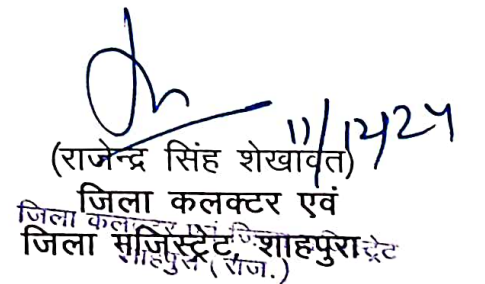 11/12/24
(राजेन्द्र सिंह शेखावत)
जिला कलक्टर एवं
जिला मजिस्ट्रेट, शाहपुरा
जिला कलक्टर एवं जिला मजिस्ट्रेट
शाहपुरा (राज.)